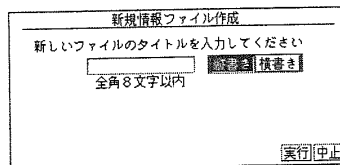 新規情報ファイル作成
新しいファイルのタイトルを入力してください
縦書き 横書き
全角8文字以内
実行 中止